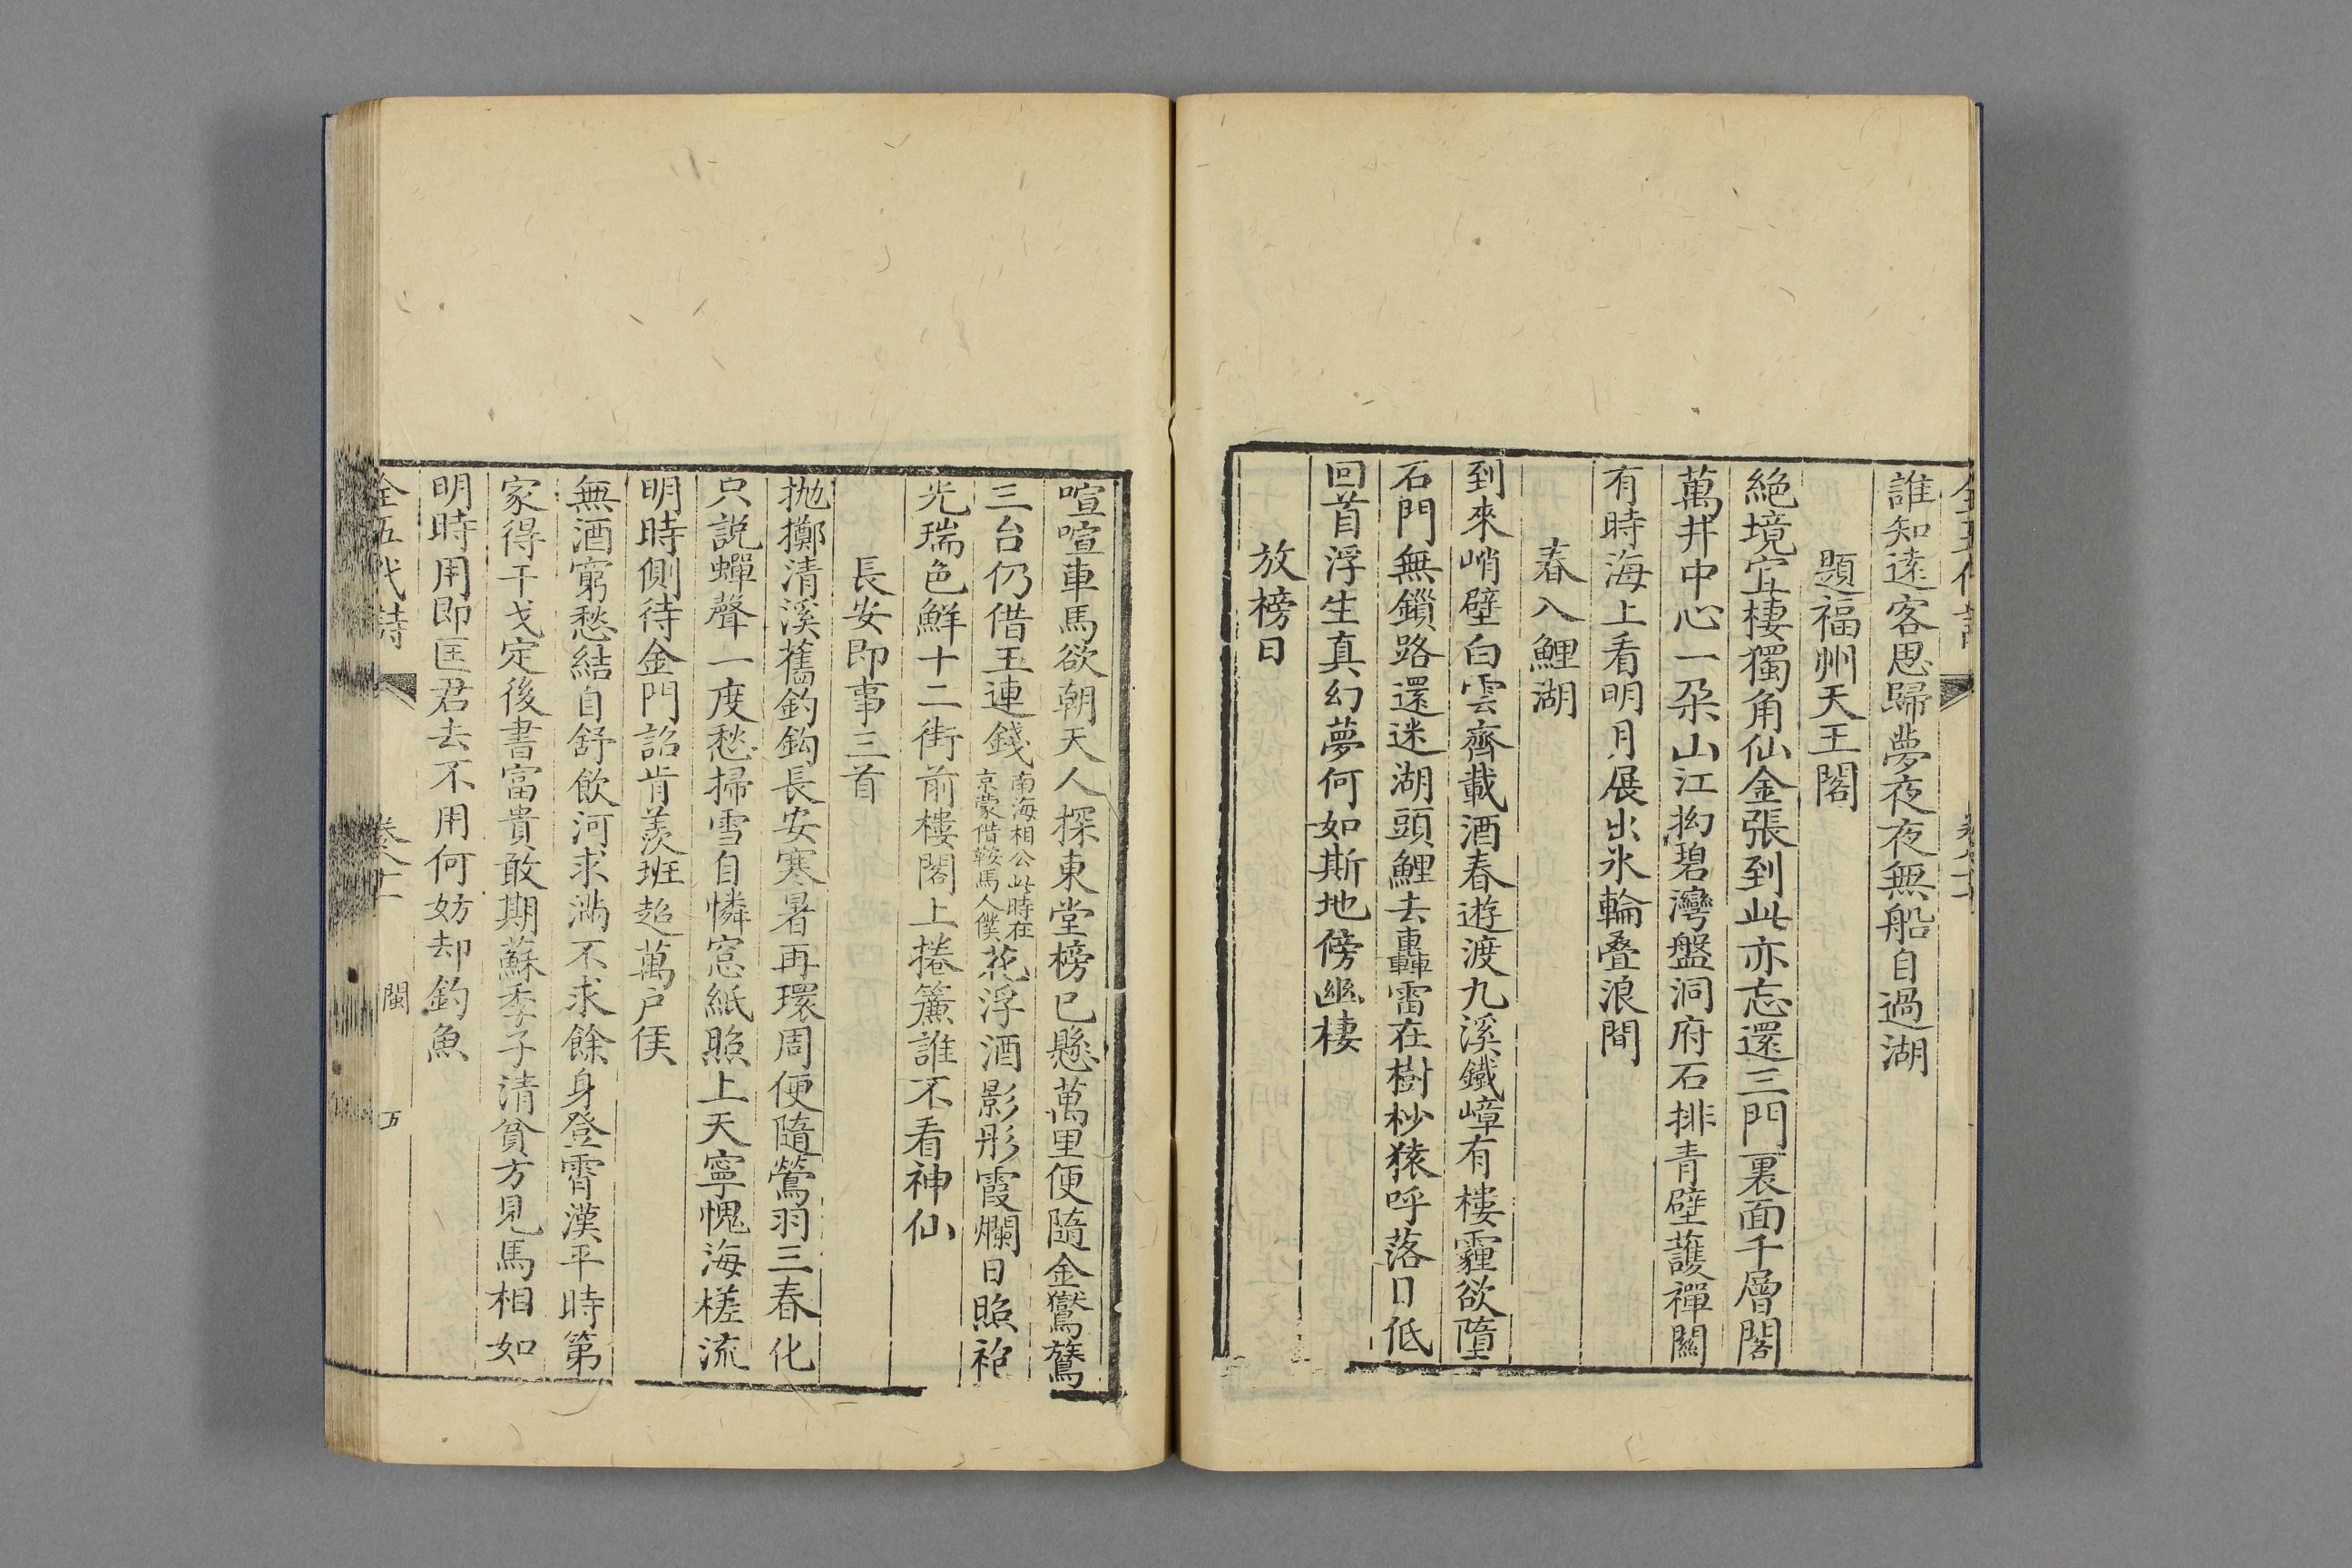 誰知遠客思歸夢夜夜無船自過湖
題福州天王閣
絕境宜棲獨角仙金張到此亦忘還三門裏面千層閣
萬井中心一朵山江拗碧灣盤洞府石排青壁護禪關
有時海上看明月展出氷輪叠浪間
春入鯉湖
到來峭壁白雲齊載酒春遊渡九溪鐵嶂有樓霾欲墮
石門無鎖路還迷湖頭鯉去轟雷在樹杪猿呼落日低
回首浮生真幻夢何如斯地傍幽棲
放榜日
喧喧車馬欲朝天人探東堂榜已懸萬里便隨金鸑鷟
三台仍借玉連錢南海相公此時在京蒙借鞍馬人僕花浮酒影彤霞爛日照袍
光瑞色鮮十二街前樓閣上捲簾誰不看神仙
長安即事三首
抛擲清溪舊釣鈎長安寒暑再環周便隨鶯羽三春化
只說蟬聲一度愁掃雪自憐窓紙照上天寧愧海槎流
明時側待金門詔肯羨班超萬戶侯
無酒窮愁結自舒飲河求滿不求餘身登霄漢平時第
家得干戈定後書富貴敢期蘇季子清貧方見馬相如
明時用即匡君去不用何妨却釣魚
全五代詩
閩
五